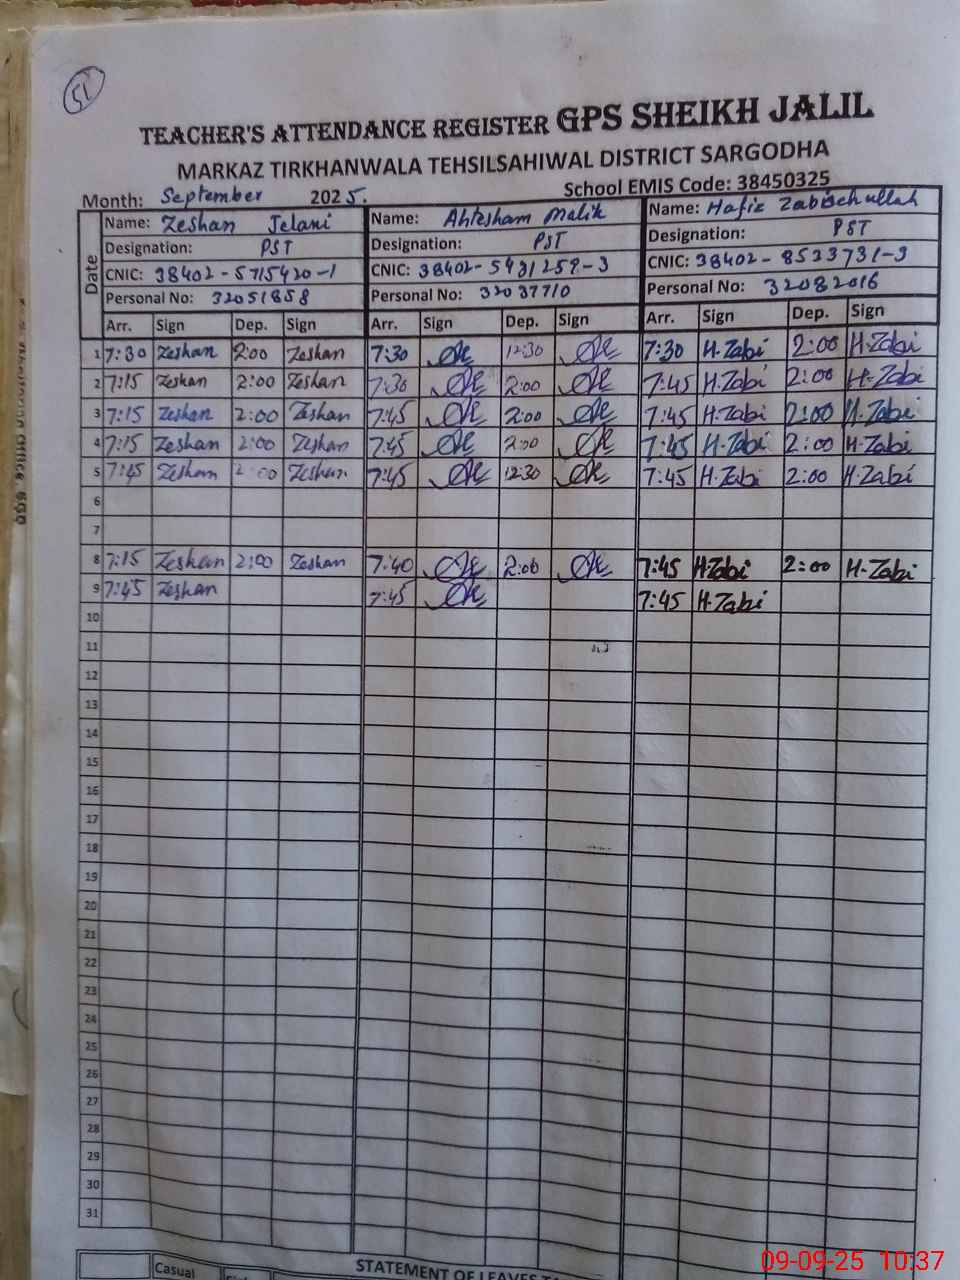 51
TEACHER'S ATTENDANCE REGISTER GPS SHEIKH JALIL
MARKAZ TIRKHANWALA TEHSILSAHIWAL DISTRICT SARGODHA
School EMIS Code: 38450325
Month: September 2025.
Date
Name: Zeshan Jelani Name: Ahtesham Malik Name: Hafiz
Designation: PST Designation: PST Designation: PST
CNIC: 38402-5715420-1 CNIC: 38402-5431259-3 CNIC: 38402-8523731-3
Personal No: 32051858 Personal No: 32037710 Personal No: 32082016
Arr. Sign Dep. Sign Arr. Sign Dep. Sign Arr. Sign Dep. Sign
1 7:30 Zeshan 2:00 Zeshan 7:30 12:30 7:30 H.Zabi 2:00 H.Zabi
2 7:15 Zeshan 2:00 Zeshan 7:30 2:00 7:45 H.Zabi 2:00 H.Zabi
3 7:15 Zeshan 2:00 Zeshan 7:45 2:00 7:45 H.Zabi 2:00 H.Zabi
4 7:15 Zeshan 2:00 Zeshan 7:45 2:00 7:45 H.Zabi 2:00 H.Zabi
5 7:45 Zeshan 2:00 Zeshan 7:45 12:30 7:45 H.Zabi 2:00 H.Zabi
6
7
8 7:15 Zeshan 2:00 Zeshan 7:40 2:00 7:45 H.Zabi 2:00 H.Zabi
9 7:45 Zeshan 7:45 7:45 H.Zabi
10
11
12
13
14
15
16
17
18
19
20
21
22
23
24
25
26
27
28
29
30
31
Casual STATEMENT OF LEAVES
09-09-25 10:37